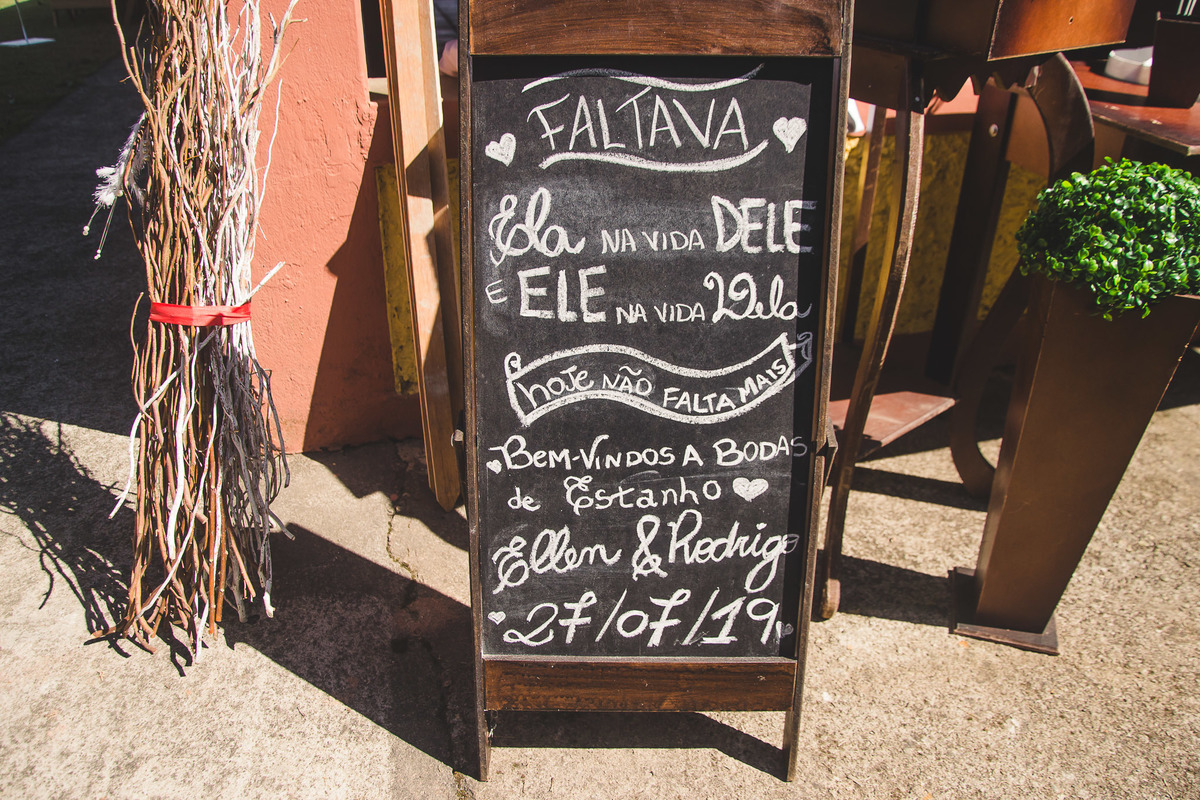 FALTAVA
Ela NA VIDA DELE
E ELE NA VIDA Dela
hoje NÃO FALTA MAIS
BEM-VINDOS A BODAS
de Estanho
Ellen & Rodrigo
27/07/19